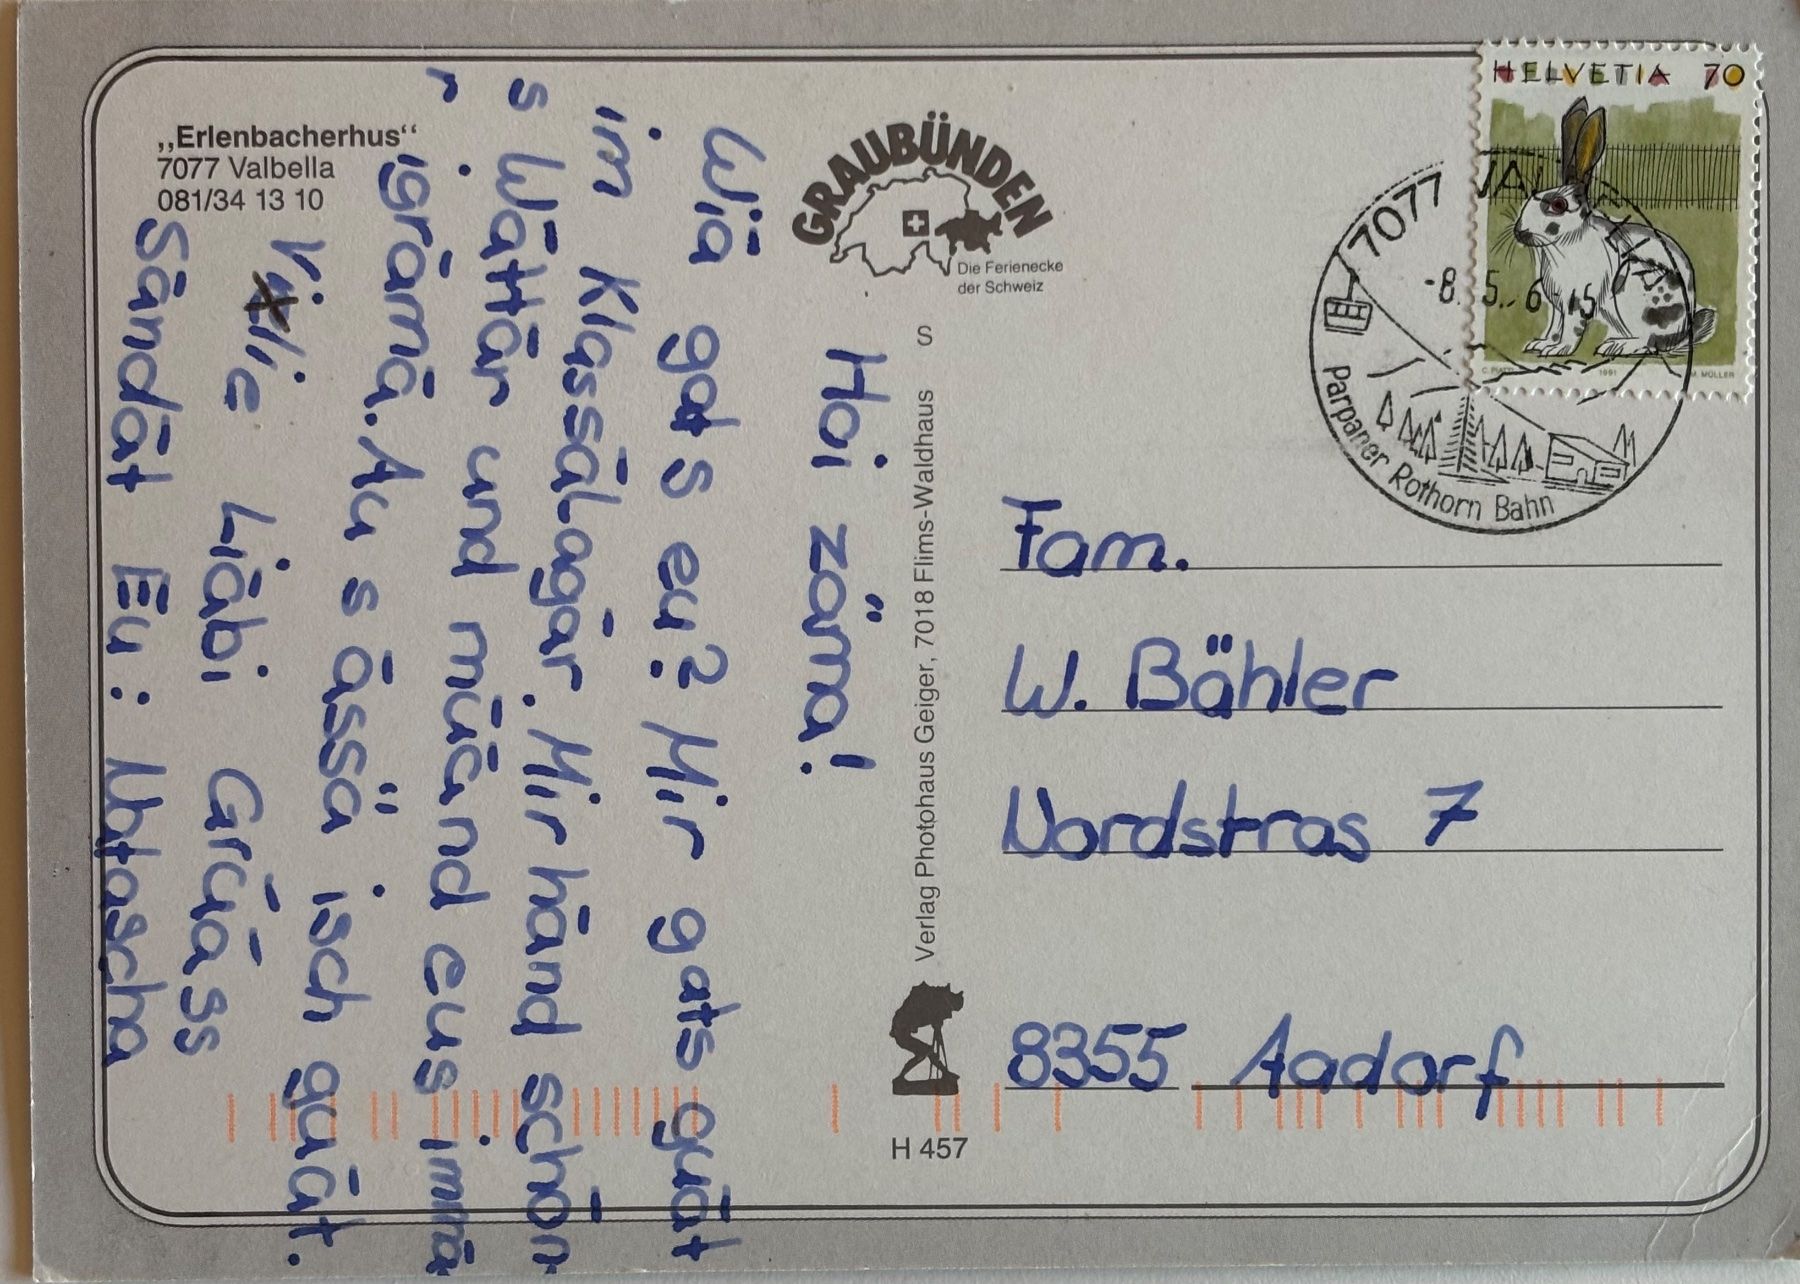 „Erlenbacherhus“
7077 Valbella
081/34 13 10
GRAUBÜNDEN
Die Ferienecke
der Schweiz
Hoi zäma!
Wiä gat s eu? Mir gats guät
im Klassälagär. Mir händ schön
s Wättär und müänd eus immä
r igrämä. Au s ässä isch guät.
Liäbi Grüäss
Sändät Eu: Natascha
S
Verlag Photohaus Geiger, 7018 Flims-Waldhaus
H 457
HELVETIA 70
1991
M. MÜLLER
7077
Parpaner Rothorn Bahn
Fam.
W. Bähler
Nordstras 7
8355 Aadorf